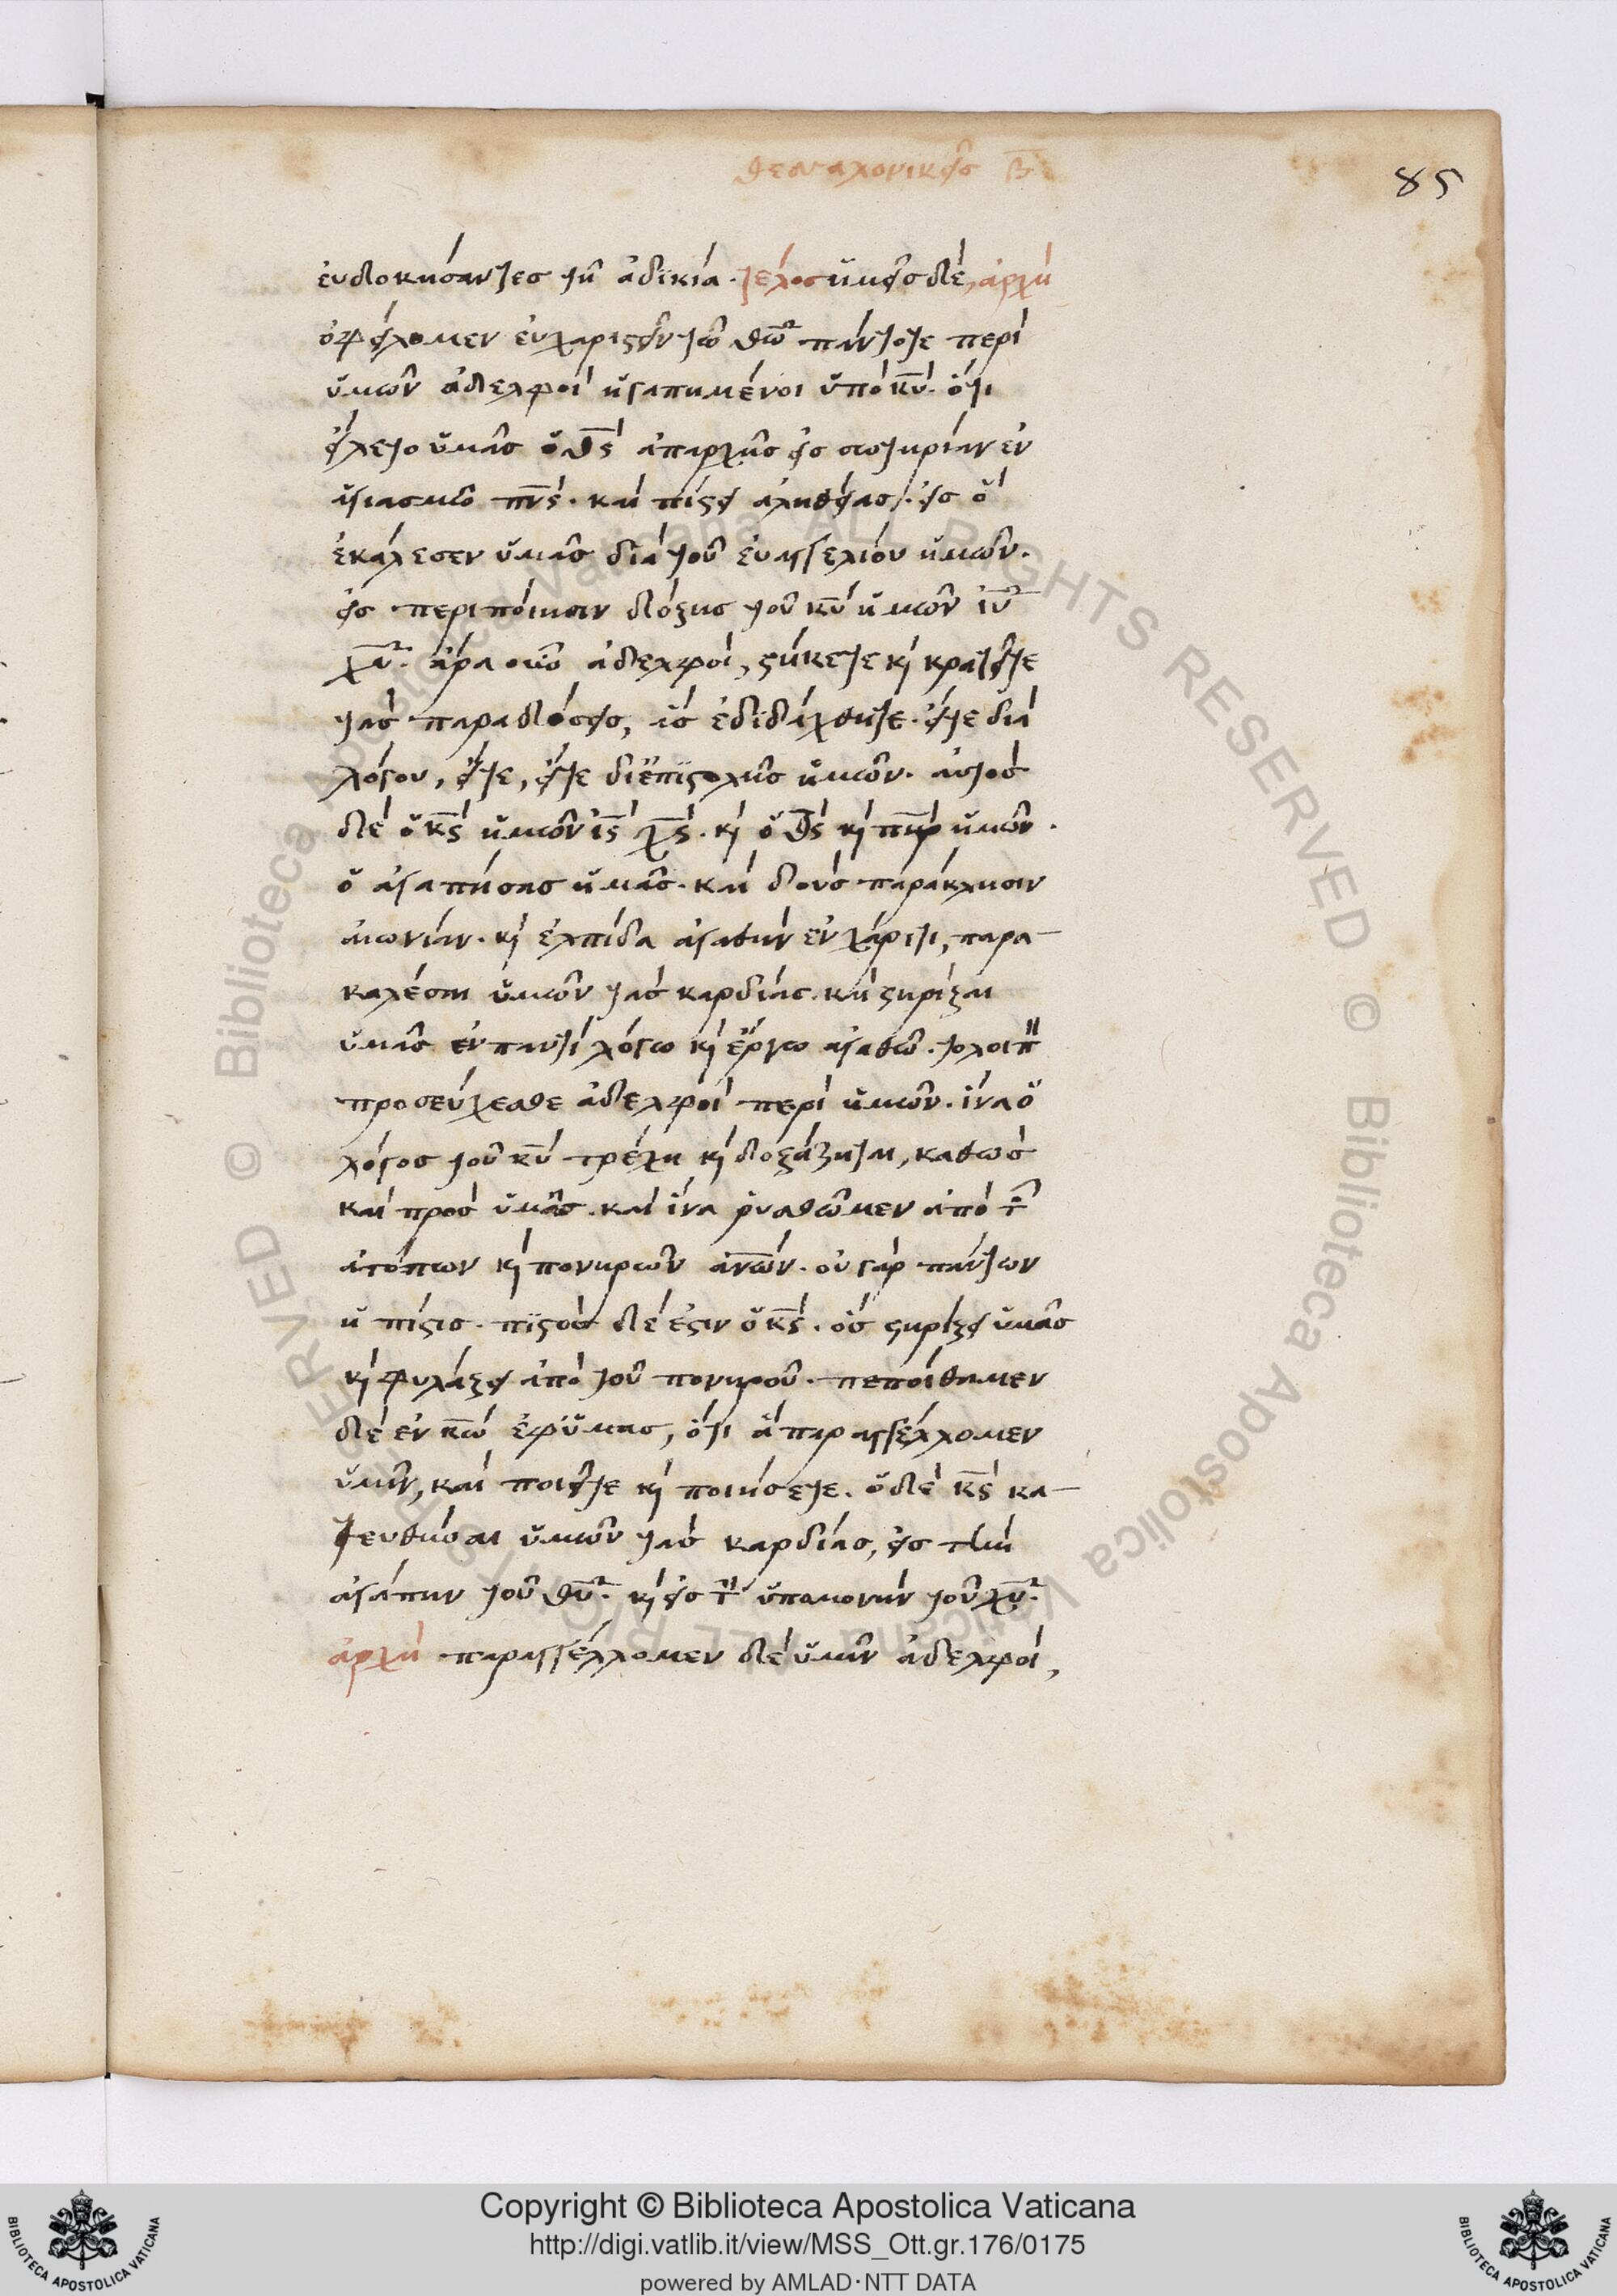 θεσσαλονικεῖς β̅
85
ἐυδοκήσαντες τῆ ἀδϊκία. τέλος ἡμεῖς δὲ, ἀρχὴ
ὀφείλομεν ἐυχαριστεῖν τῶ θ̅ω̅ πάντοτε περὶ
ὑμῶν ἀδελφοὶ ἠγαπημένοι ὑπὸ κ̅υ̅. ὅτι
εἵλετο ὑμᾶς ὁ θ̅ς̅ ἀπαρχῆς εἰς σωτηρίαν ἐν
ἁγιασμῶ π̅ν̅ς̅. καὶ πίστει ἀληθείας. εἰς ὃ
ἐκάλεσεν ὑμᾶς διὰ τοῦ ἐυαγγελίου ἡμῶν.
εἰς περιποίησιν δόξης τοῦ κ̅υ̅ ἡμῶν ἰ̅υ̅
χ̅υ̅. ἄρα οὖν ἀδελφοὶ, στήκετε κὶ κρατεῖτε
τὰς παραδόσεις, ἃς ἐδϊδάχθητε. εἴτε διὰ
λόγου, εἴτε, εἴτε δι ἐπϊστολῆς ἡμῶν. αὐτὸς
δὲ ὁ κ̅ς̅ ἡμῶν ἰ̅ς̅ χ̅ς̅. κὶ ὁ θ̅ς̅ κὶ π̅η̅ρ̅ ἡμῶν.
ὁ ἀγαπήσας ἡμᾶς. καὶ δοὺς παράκλησιν
αἰωνίαν. κὶ ἐλπίδα ἀγαθὴν ἐν χάριτι, παρα-
καλέσαι ὑμῶν τὰς καρδίας. καὶ στηρίξαι
ὑμᾶς ἐν παντὶ λόγω κὶ ἔργω ἀγαθῶ. τολοιπ
προσεύχεσθε ἀδελφοὶ περὶ ἡμῶν. ἵνα ὁ
λόγος τοῦ κ̅υ̅ τρέχη κὶ δοξάζηται, καθὼς
καὶ πρὸς ὑμᾶς. καὶ ἵνα ῥυσθῶμεν ἀπὸ τ̅
ἀτόπων κὶ πονηρῶν ἀ̅ν̅ω̅ν̅. οὐ γὰρ πάντων
ἡ πίστις. πϊστὸς δέ ἐστιν ὁ κ̅ς̅. ὃς στηρίξει ὑμᾶς
κὶ φυλάξει ἀπὸ τοῦ πονηροῦ. πεποίθαμεν
δὲ ἐν κ̅ω̅ ἐφ ὑμᾶς, ὅτι ἃ παραγγέλλομεν
ὑμῖν, καὶ ποιεῖτε κὶ ποιήσετε. ὁ δὲ κ̅ς̅ κα-
τευθύσαι ὑμῶν τὰς καρδίας, εἰς τὴν
ἀγάπην τοῦ θ̅υ̅. κὶ εἰς τ̅ ὑπομονὴν τοῦ χ̅υ̅.
ἀρχὴ παραγγέλλομεν δὲ ὑμῖν ἀδελφοὶ,
© Biblioteca Apostolica Vaticana ALL RIGHTS RESERVED
Copyright © Biblioteca Apostolica Vaticana
http://digi.vatlib.it/view/MSS_Ott.gr.176/0175
powered by AMLAD·NTT DATA
BIBLIOTECA APOSTOLICA VATICANA
BIBLIOTECA APOSTOLICA VATICANA